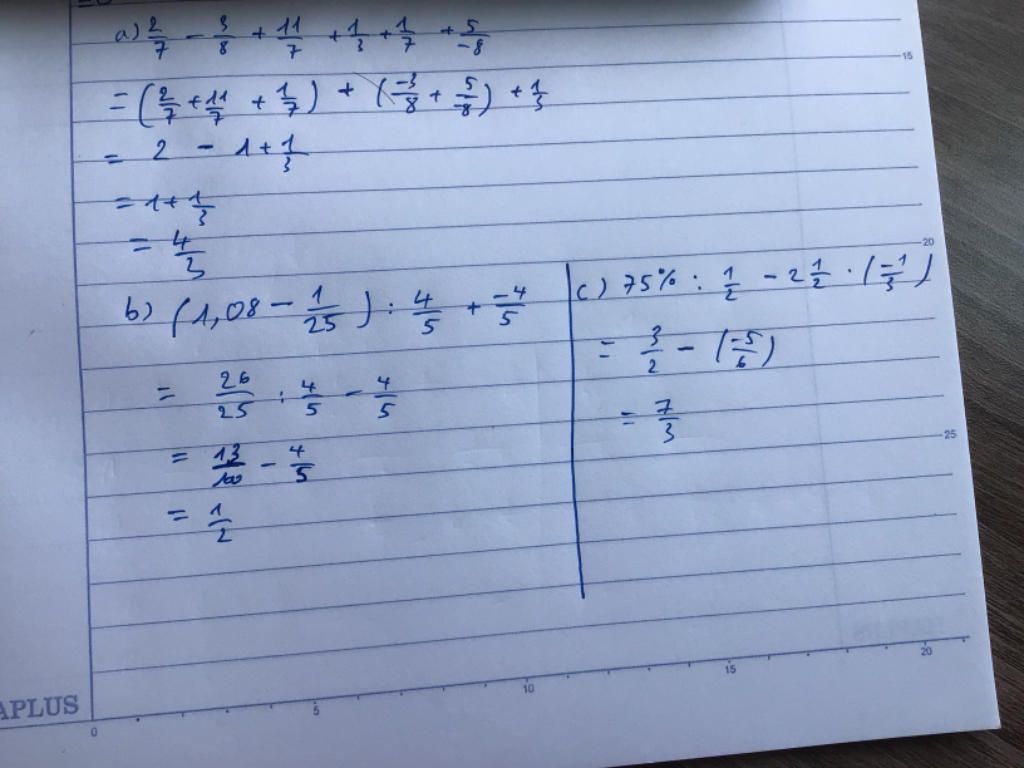 a) 2/7 - 3/8 + 11/7 + 1/3 + 1/7 + 5/-8
= (2/7 + 11/7 + 1/7) + (-3/8 + 5/-8) + 1/3
= 2 - 1 + 1/3
= 1 + 1/3
= 4/3
b) (1,08 - 1/25) : 4/5 + -4/5
= 26/25 : 4/5 - 4/5
= 13/10 - 4/5
= 1/2
c) 75% : 1/2 - 2 1/2 . (-1/3)
= 3/2 - (-5/6)
= 7/3
15
20
25
APLUS
0
5
10
15
20